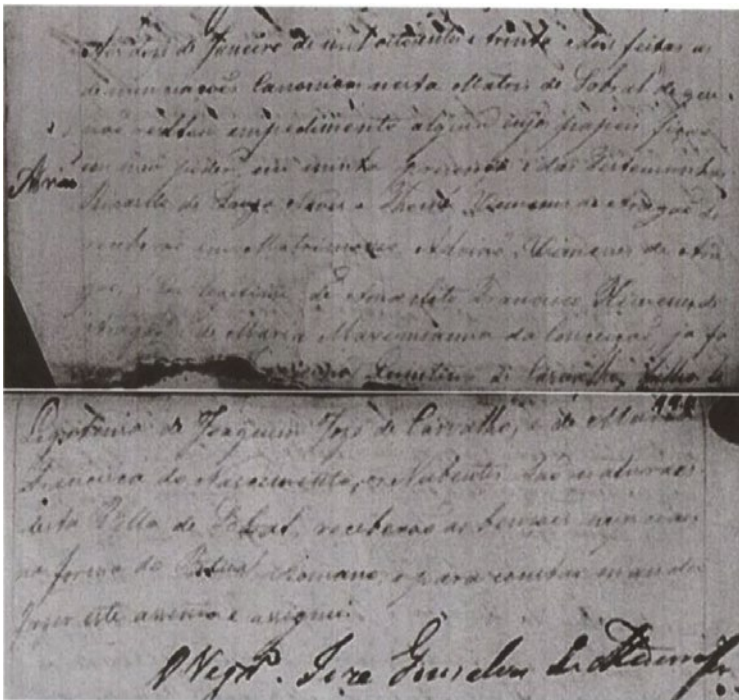 Aos dous de Janeiro de mil oitocentos e trinta e dois feitas as
denunciações Canonicas nesta Matris de Sobral de que
não rezultou empedimento algum cujo papeis ficão
em meu poder, em minha prezença e das Testemunhas
Adrião
de Souza Neves e Thomé Ximenes de Aragão Se
receberão em Matrimonio Adrião Ximenes de Ara
gão, legitimo de Anacleto Francisco Ximenes de
Aragão e de Maria Maximianna da Conceição, ja fa
de Carvalho, filha le
Legitima de Joaquim Jozé de Carvalho, e de Maria
Francisca do Nascimento, os Nubentes são naturaes
desta Villa de Sobral, receberão as bensaes nupciaes
na forma do Ritual Romano, e para constar mandei
fazer este assento e assignei.
O Vigrº. Joze Gonçalves de Medeiros